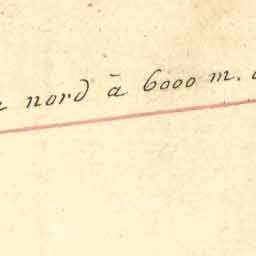 nord à 6000 m.